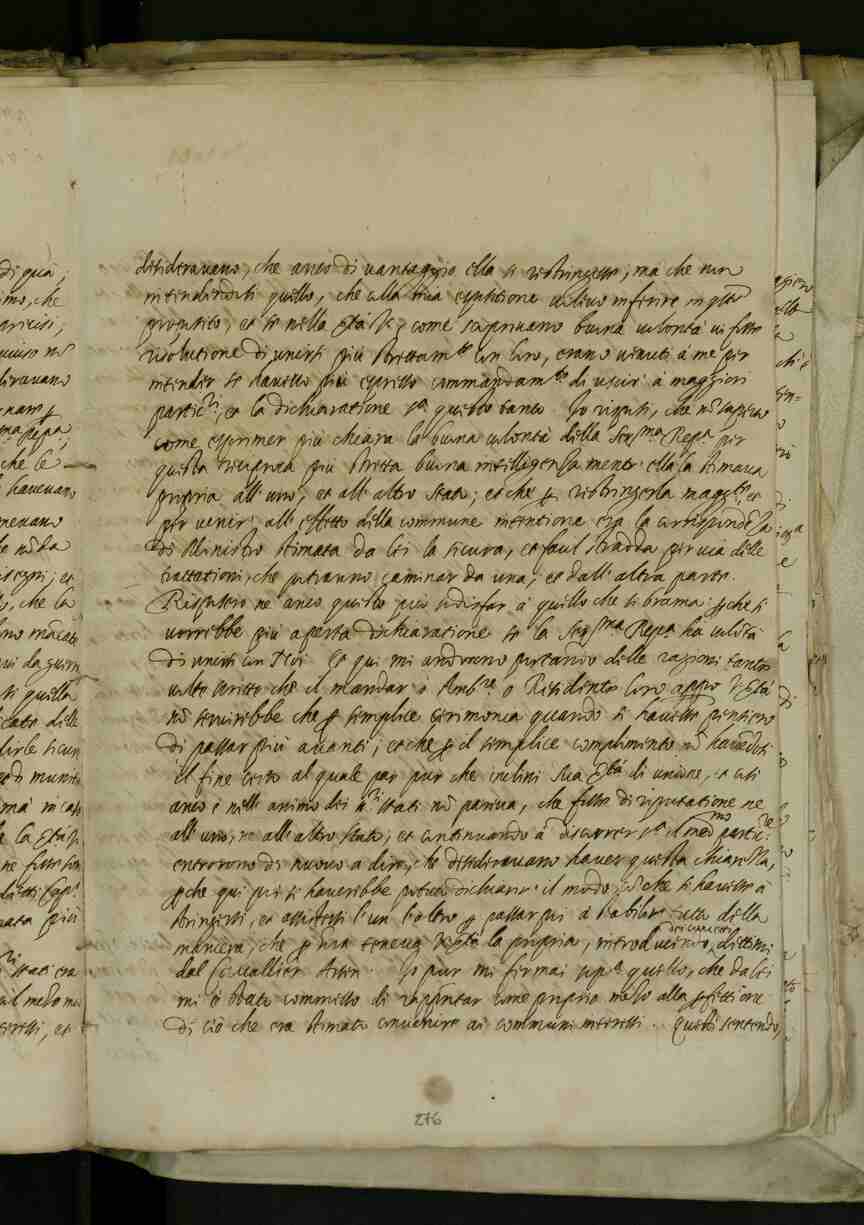 desideravano, che anco di vantaggio ella si restringesse, ma che non
intendendosi quello, che alla mia espositione volevo inferire in q.sto
proposito, et se nella come scoprivano buona volontà vi fosse
risolutione di unirsi più strettam.te con loro, erano venuti à me per
intender se havesse più espresso commandam.to di uscir à maggiori
partic.ri, et la dichiaratione s.a questo tanto. Io risposi, che nõ sapevo
come esprimer più chiara la buona volontà della Ser.ma Rep.a per
questa reciproca più stretta buona intelligenza mentre ella la stimava
propria all'uno, et all'altro stato; et che p restringerla magg.te, et
per venir all'effetto della commune intentione era la corrispondẽza
di Ministro stimata da lei la sicura, et facil strada per via delle
trattationi, che potranno caminar da una, et dall'altra parte.
Risposero ne anco questo può sodisfar à quello che si brama pche si
vorrebbe più aperta dichiaratione se la Ser.ma Rep.a ha volõtà
di unirsi con Noi. Et qui mi andarono portando delle ragioni tante
volte scritte che il mandar ò Amb.re, ò Residente loro appo V. Stà
nõ servirebbe che p semplice cerimonia quando si havesse pensiero
di passar più avanti; et che p il semplice complimento nõ havẽdosi
il fine certo al quale par pur che inclini Sua Stà di unione, et così
anco è nell'animo dei s.ri stati nõ pareva, che fosse di riputatione ne
all'uno, ne all'altro stato; et continuando à discorrer s.a il med.mo partic.re
entrorono di nuovo a dire, che desideravano haver questa chiarezza,
pche qui poi si haverebbe potuto dichiarir il modo, cõ che si havesse à
stringersi, et assistersi l'un l'altro p passar poi à stabilir tutto della
maniera, che p mia teneva V. Stà la propria, introducendo
dei concetti
dettimi
dal Cavallier Arsen. Io pur mi firmai sop.a quello, che da lei
mi è stato commesso di rappñtar come proprio mezo alla pfettione
di ciò che era stimato convenire ai communi interessi. Questi sentendo,
276